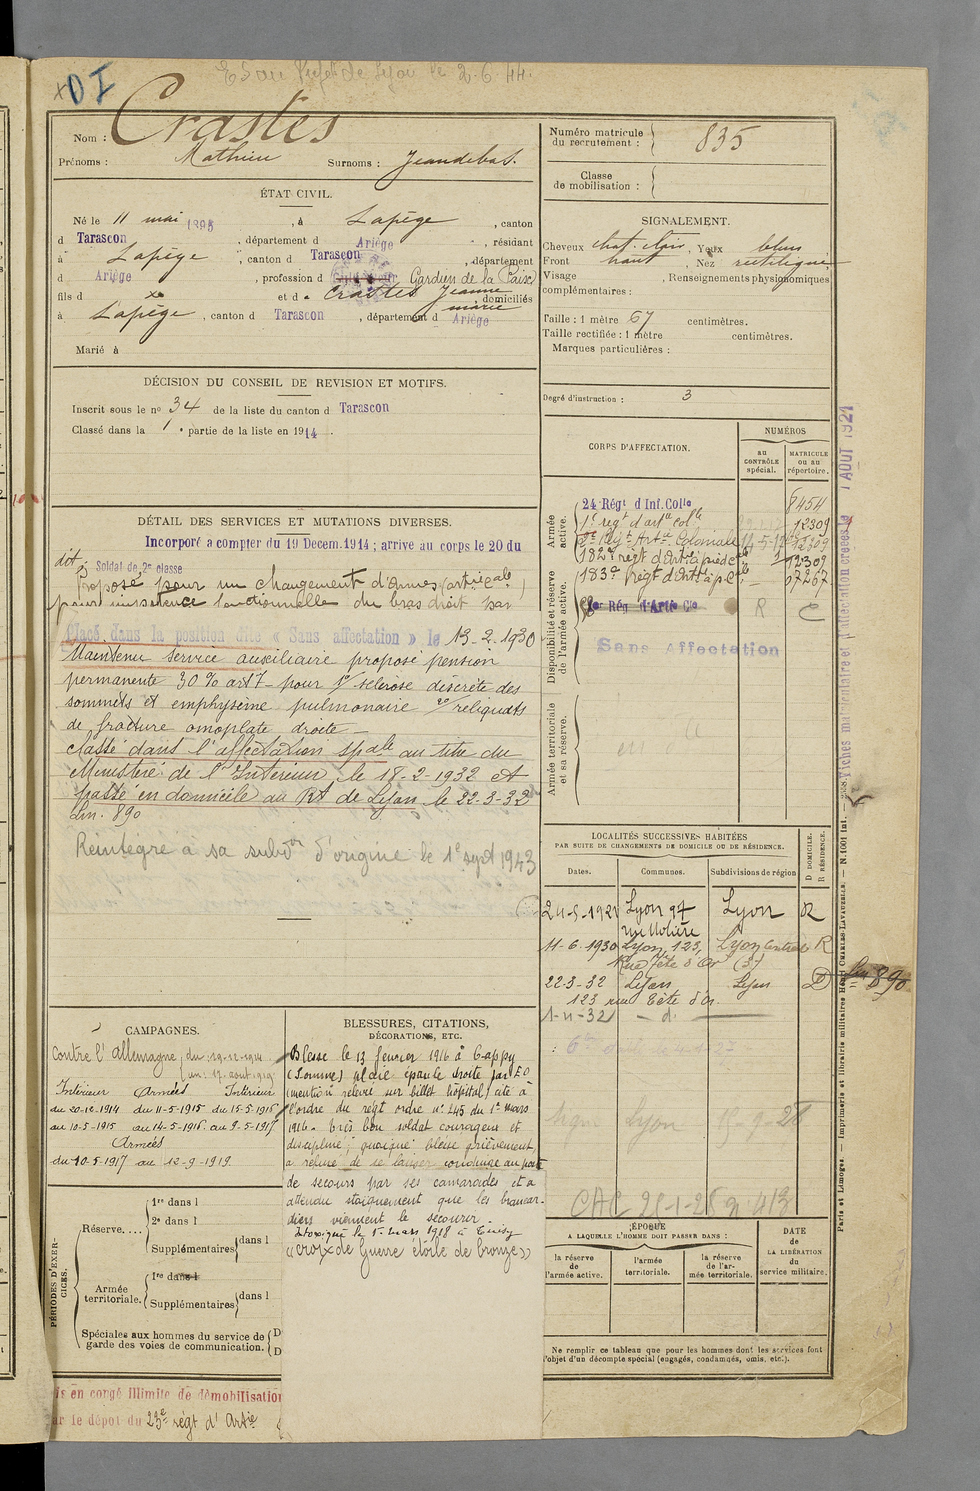 OI
le 2-6-44.
Nom : Crastes
Prénoms : Mathieu Surnoms : Jeandebas.
ÉTAT CIVIL.
Né le 11 mai 1895, à Lapège, canton
d Tarascon, département d Ariège, résidant
à Lapège, canton d Tarascon, département
d Ariège, profession d Gardien de la Paix
fils d x et d e Crastes Jeanne marie, domiciliés
à Lapège, canton d Tarascon, département d Ariège
Marié à
DÉCISION DU CONSEIL DE REVISION ET MOTIFS.
Inscrit sous le no 34 de la liste du canton d Tarascon
Classé dans la 1e partie de la liste en 1914.
DÉTAIL DES SERVICES ET MUTATIONS DIVERSES.
Incorporé a compter du 19 Decem. 1914 ; arrive au corps le 20 du
dit, Soldat de 2e classe
Proposé pour un changement d'armes (artie cale)
pour impotence fonctionnelle du bras droit par
Placé dans la position dite « Sans affectation » le 13-2-1930
Maintenu service auxiliaire proposé pension
permanente 30% art 7 pour 1° sclérose discrète des
sommets et emphysème pulmonaire 2°/ reliquats
de fracture omoplate droite
classé dans l'affectation spale au titre du
Ministère de l'Intérieur, le 18-2-1932 et
passé en domicile au Rt de Lyon le 22-3-32
Lin. 890
Réintégré à sa subdon d'origine le 1e sept 1943
CAMPAGNES.
Contre l'allemagne (du : 19-12-1914
au : 17 aout 1919
Intérieur Armées Intérieur
du 20-12-1914 du 11-5-1915 du 15-5-1916
au 10-5-1915 au 14-5-1916 au 9-5-1917
Armées
du 10-5-1917 au 12-9-1919.
PÉRIODES D'EXERCICES.
Réserve....
1re dans l
2e dans l
Supplémentaires dans l
Armée territoriale.
1re dans l
Supplémentaires dans l
Spéciales aux hommes du service de garde des voies de communication. D
D
is en congé illimité de démobilisation
ar le dépot du 23e régt d'Artie
BLESSURES, CITATIONS,
DÉCORATIONS, ETC.
Blessé le 13 février 1916 à Cappy
(Somme) plaie épaule droite par E O
(mention relevée sur billet hôpital) cité à
l'ordre du régt ordre n° 245 du 1er mars
1916. Très bon soldat courageux et
discipliné ; quoique blessé grièvement
a refusé de se laisser conduire au poste
de secours par ses camarades et a
attendu stoïquement que les brancar-
diers viennent le secourir.
Intoxiqué le 1er mars 1918 à
« Croix de Guerre étoile de bronze »
Numéro matricule du recrutement : 835
Classe de mobilisation :
SIGNALEMENT.
Cheveux chat. clair, Yeux bleus
Front haut, Nez rectiligne
Visage , Renseignements physiognomiques
complémentaires :
Taille : 1 mètre 67 centimètres.
Taille rectifiée : 1 mètre centimètres.
Marques particulières :
Degré d'instruction : 3
CORPS D'AFFECTATION.
NUMÉROS
au CONTRÔLE spécial.
MATRICULE ou au répertoire.
Armée active.
24 Régt d'Inf. Colle 8454
1e regt d'arte colle 12309
2e Regt Arte Coloniale 12309
182e régt d'Artie à pied 12309
183e Régt d'Art à p. 07267
Disponibilité et réserve de l'armée active.
1er Rég d'Artie Cle R
Sans Affectation
Armée territoriale et sa réserve.
LOCALITÉS SUCCESSIVES HABITÉES
PAR SUITE DE CHANGEMENTS DE DOMICILE OU DE RÉSIDENCE.
D DOMICILE. R RÉSIDENCE.
Dates. Communes. Subdivisions de région
24-5-1921 Lyon 97 rue Molière Lyon R
11-6-1930 Lyon, 123, Rue Tête d'Or Lyon Central (3e) R
22-3-32 Lyon 123 rue Tête d'Or Lyon D
Lin 890
1-11-32 - d° -
Lyon 15-9-28
ÉPOQUE
A LAQUELLE L'HOMME DOIT PASSER DANS :
la réserve de l'armée active.
l'armée territoriale.
la réserve de l'armée territoriale.
DATE de LA LIBÉRATION du service militaire.
Ne remplir ce tableau que pour les hommes dont les services font
l'objet d'un décompte spécial (engagés, condamnés, omis, etc.).
Fiches matriculaire et d'affectation créées le 1 AOUT 1921
Paris et Limoges. — Imprimerie et librairie militaires Henri CHARLES-LAVAUZELLE. — N. 1001 int. —